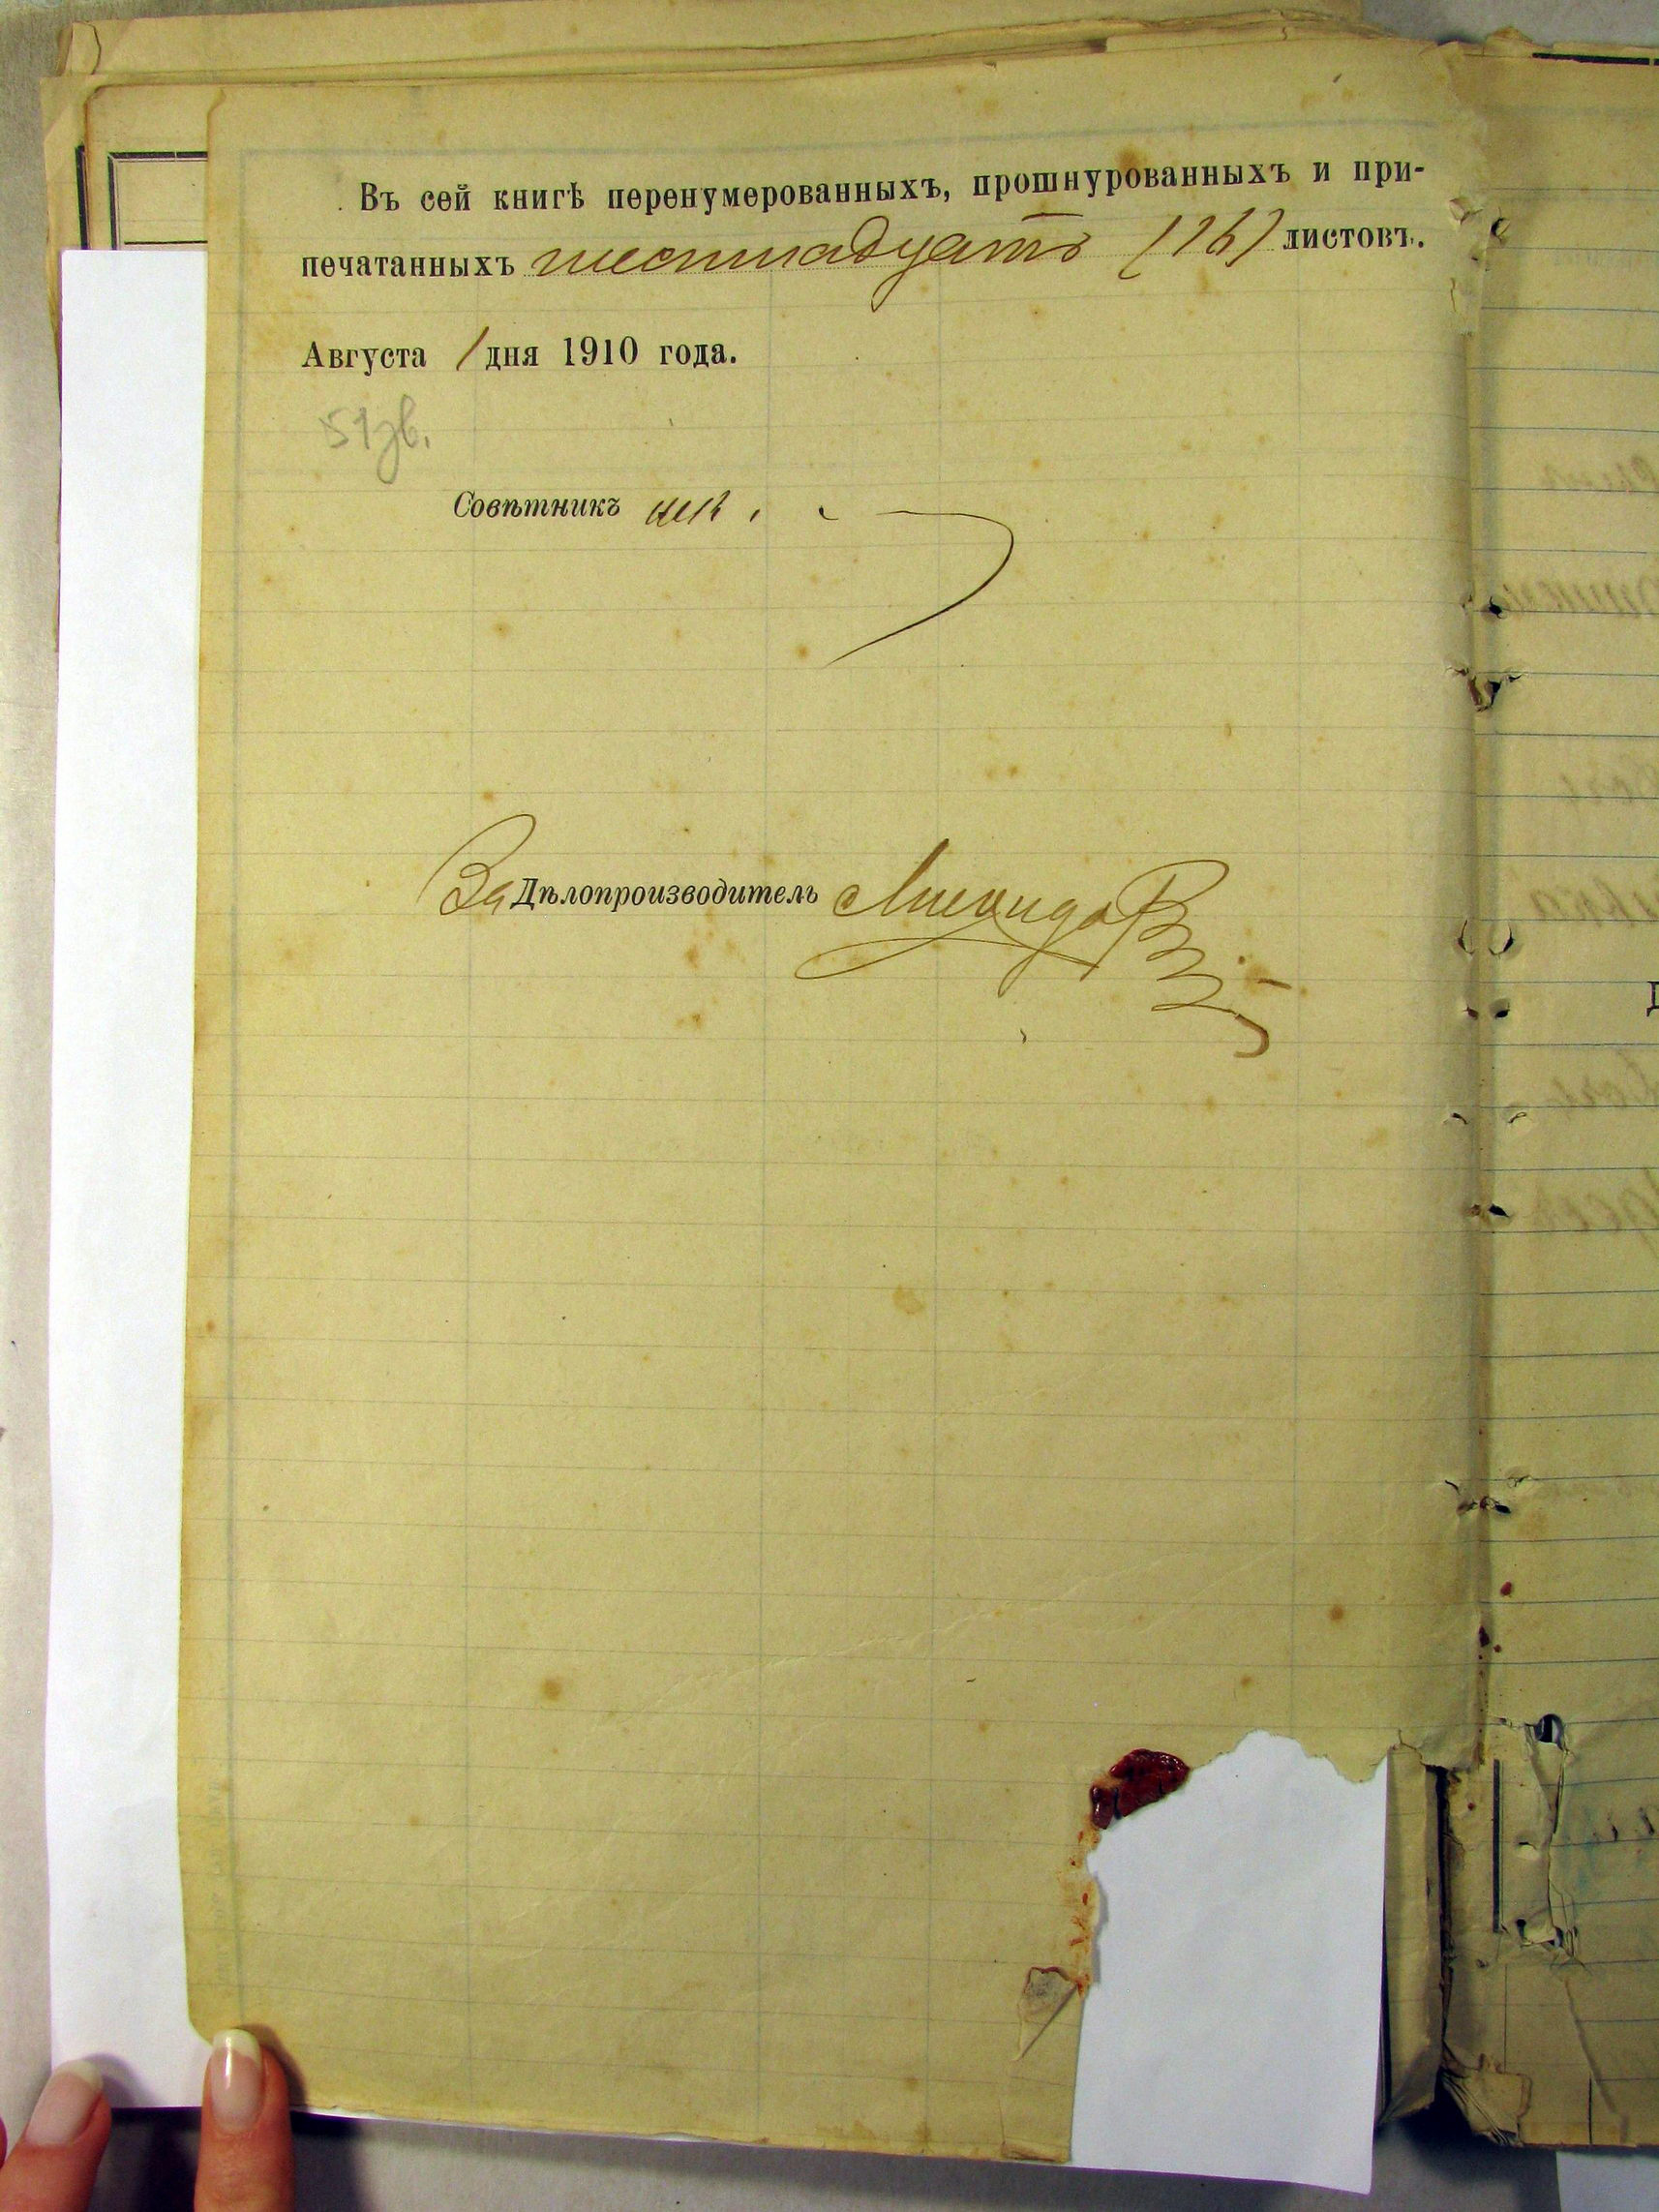 Въ сей книгѣ перенумерованныхъ, прошнурованныхъ и при-
печатанныхъ шестнадцать (16) листовъ.
Августа 1 дня 1910 года.
51зв.
Совѣтникъ
За Дѣлопроизводитель